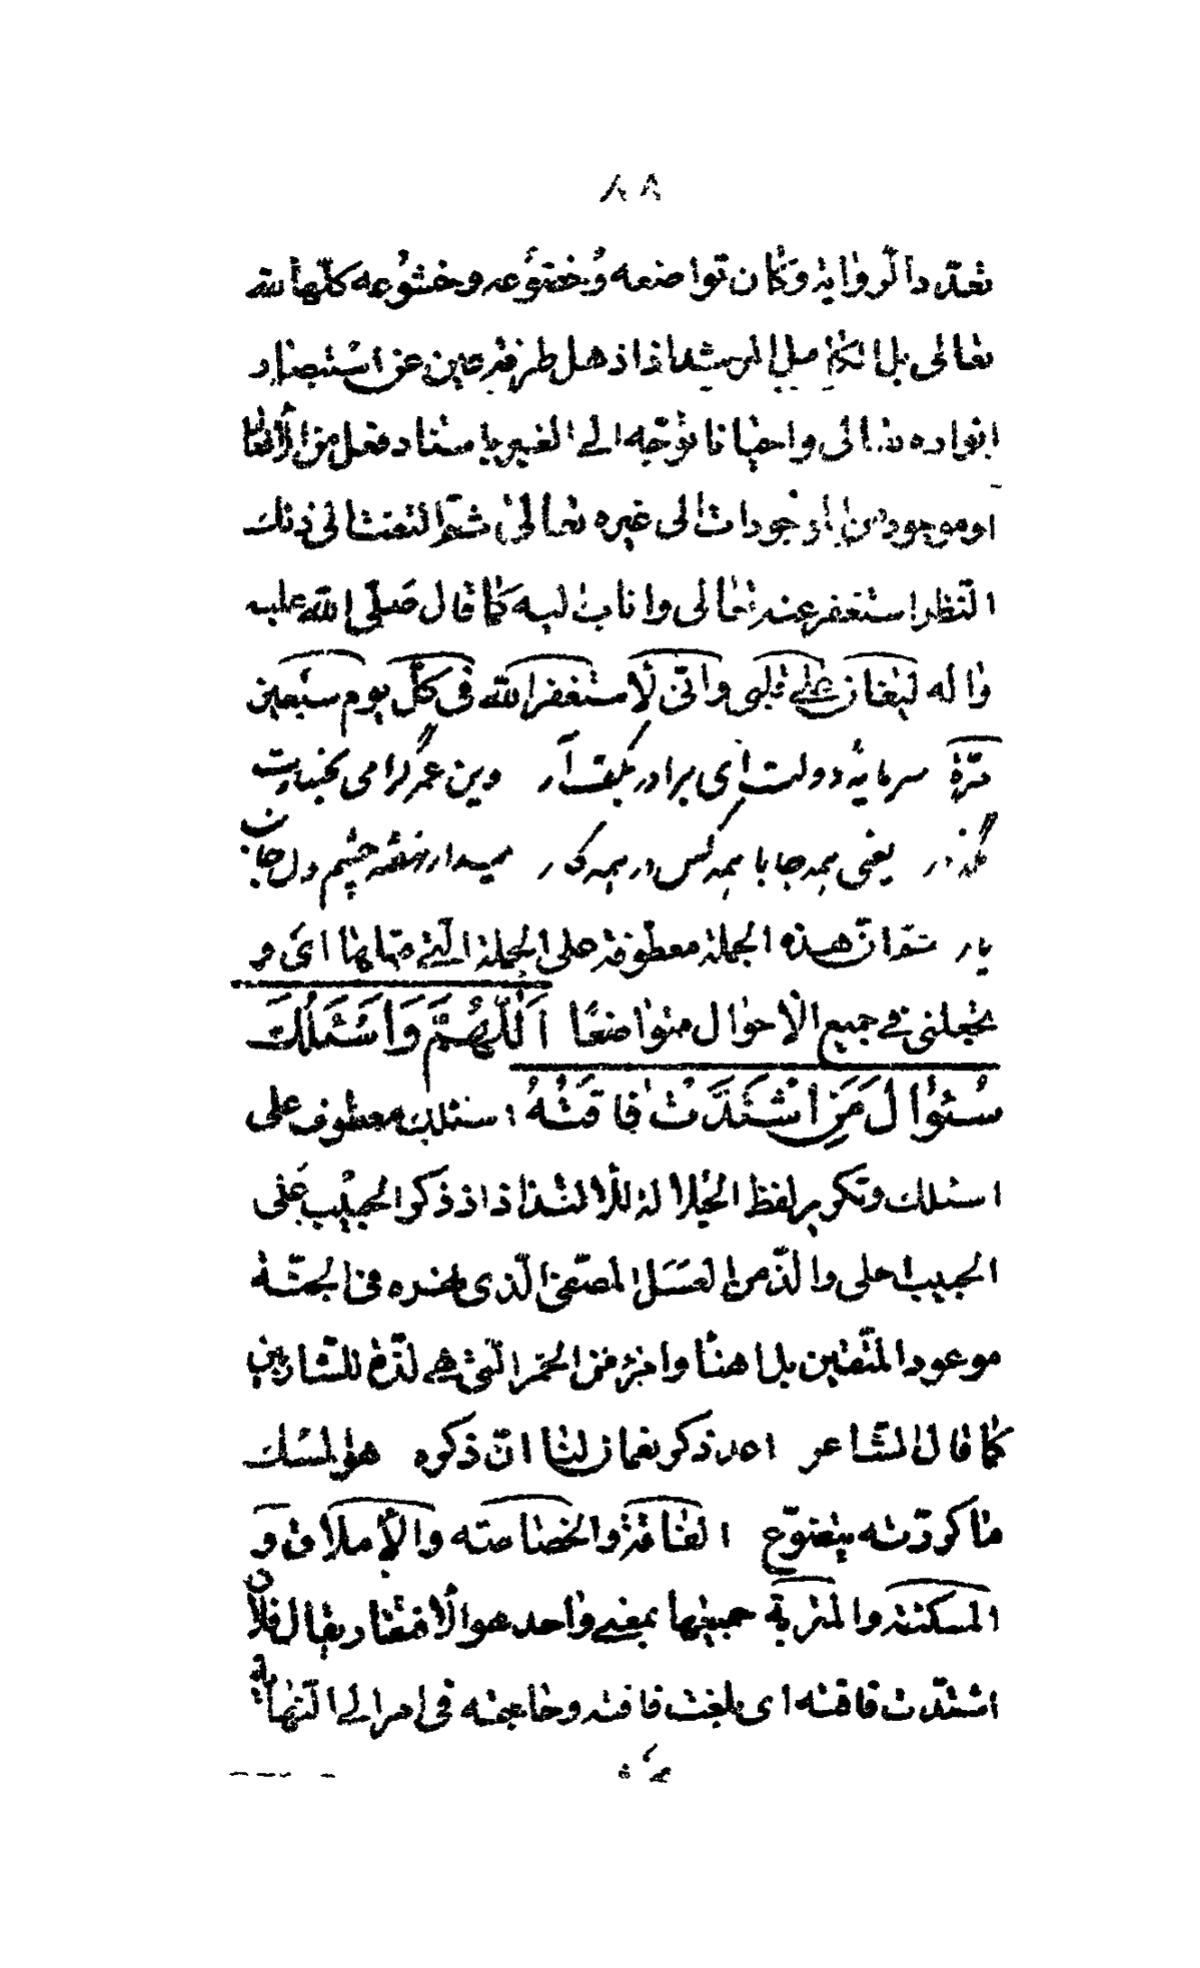 ٨٨
تعدّد الرّواية وكان تواضعه وخضوعه وخشوعه كلّها لله
تعالى بل الكامل المرشد اذا ذهل طرفة عين عن استبصار
انواره تعالى واحيانا توجّه الى الغير باسناد فعل من الأفعال
او موجود من الموجودات الى غيره تعالى ثمّ التفت الى ذلك
النّظر استغفر عنه تعالى واناب اليه كما قال صلّى الله عليه
واله ليغان على قلبى وانّى لأستغفر الله فى كلّ يوم سبعين
مرّة سرمايۀ دولت اى برادر بكف آر وين عمر گرامى بخسارت
مگذار يعنى همه جا با همه كس در همه كار ميدار نهفته چشم دل جانب
يار ثمّ انّ هذه الجملة معطوفة على الجملة الّتى قبلها اى و
تجعلنى فى جميع الأحوال متواضعًا اَللّهُمَّ وَاَسْئَلُكَ
سُئوالَ مَنِ اشْتَدَّتْ فاقَتُهُ اسئلك معطوف على
اسئلك وتكرير لفظ الجلالة للالتذاذ اذ ذكر الحبيب على
الحبيب احلى والذّ من العسل المصفّى الّذى نهره فى الجنّة
موعود المتّقين بل اهنأ وامرء من الخمر الّتى هى لذّة للشّاربين
كما قال الشّاعر اعد ذكر نعمان لنا انّ ذكره هو المسك
ما كرّرته يتضوّع الفاقة والخصاصة والإملاق و
المسكنة والمتربة جميعها بمعنى واحد هو الافتقار يقال فلان
اشتدّت فاقته اى بلغت فاقته وحاجته فى امر الى النّهاية